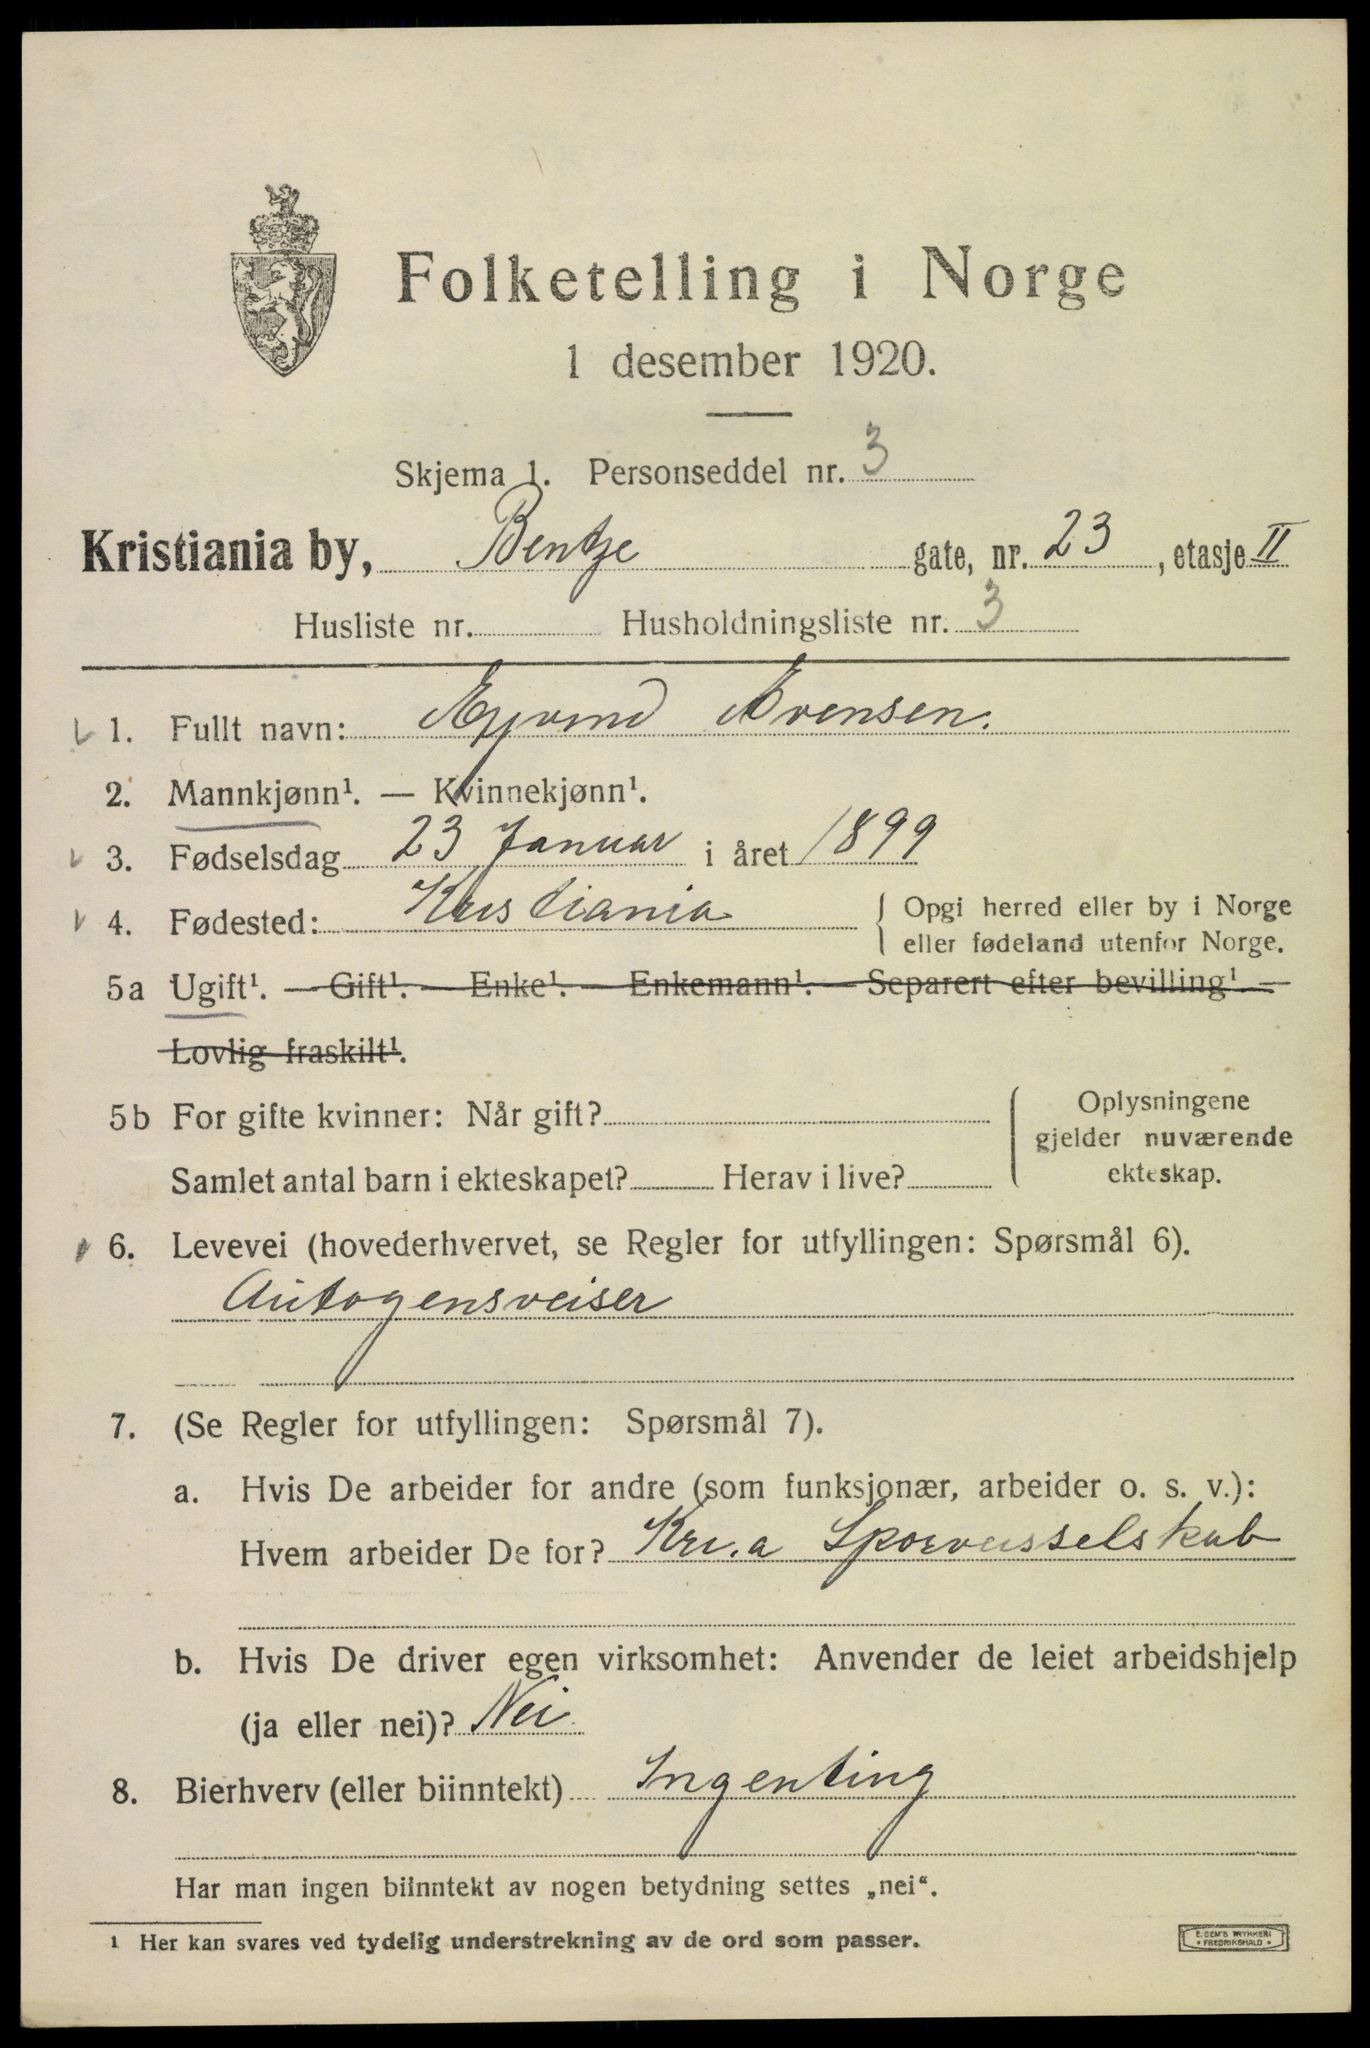 Folketelling i Norge
1 desember 1920.
Skjema 1. Personseddel nr. 3
Kristiania by, Bentze gate, nr. 23, etasje II
Husliste nr. Husholdningsliste nr. 3
1. Fullt navn: Ejvind Evensen.
2. Mannkjønn¹. — Kvinnekjønn¹.
3. Fødselsdag 23 Januar i året 1899
4. Fødested: Kristiania { Opgi herred eller by i Norge
eller fødeland utenfor Norge.
5a Ugift¹. — Gift¹. — Enke¹. — Enkemann¹. — Separert efter bevilling¹. —
Lovlig fraskilt¹.
5b For gifte kvinner: Når gift? { Oplysningene
gjelder nuværende
Samlet antal barn i ekteskapet? Herav i live? ekteskap.
6. Levevei (hovederhvervet, se Regler for utfyllingen: Spørsmål 6).
Autogensveiser
7. (Se Regler for utfyllingen: Spørsmål 7).
a. Hvis De arbeider for andre (som funksjonær, arbeider o. s. v.):
Hvem arbeider De for? Kr.a Sporveisselskab
b. Hvis De driver egen virksomhet: Anvender de leiet arbeidshjelp
(ja eller nei)? Nei
8. Bierhverv (eller biinntekt) Ingenting
Har man ingen biinntekt av nogen betydning settes „nei“.
¹ Her kan svares ved tydelig understrekning av de ord som passer.
E. SEM'S TRYKKERI
• FREDRIKSHALD •